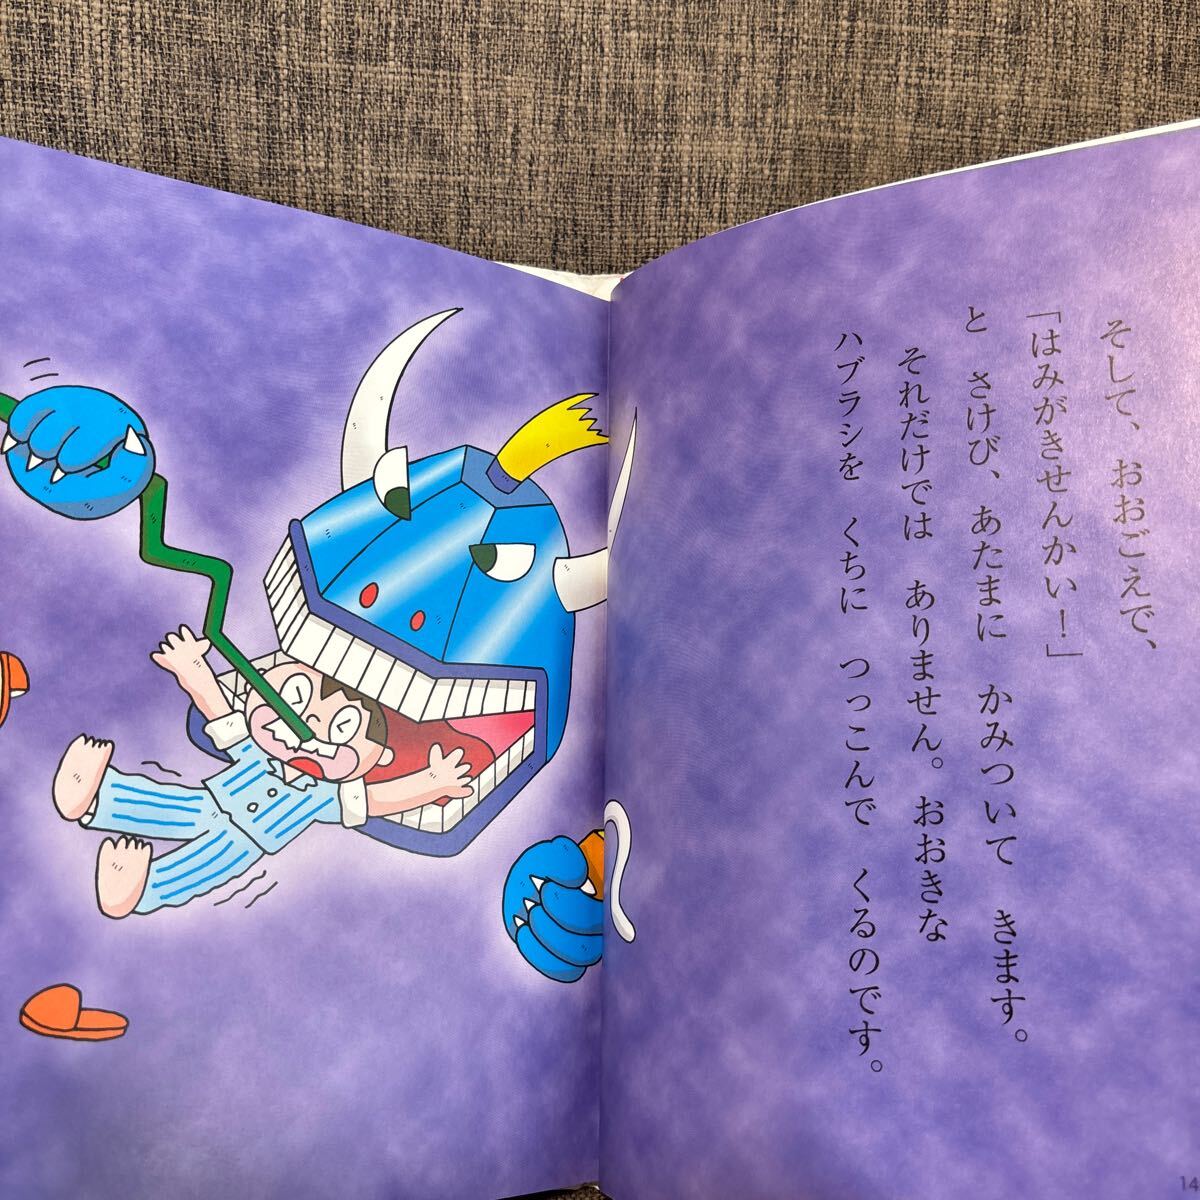 そして、おおごえで、
「はみがきせんかい！」
と　さけび、あたまに　かみついて　きます。
それだけでは　ありません。おおきな
ハブラシを　くちに　つっこんで　くるのです。
14